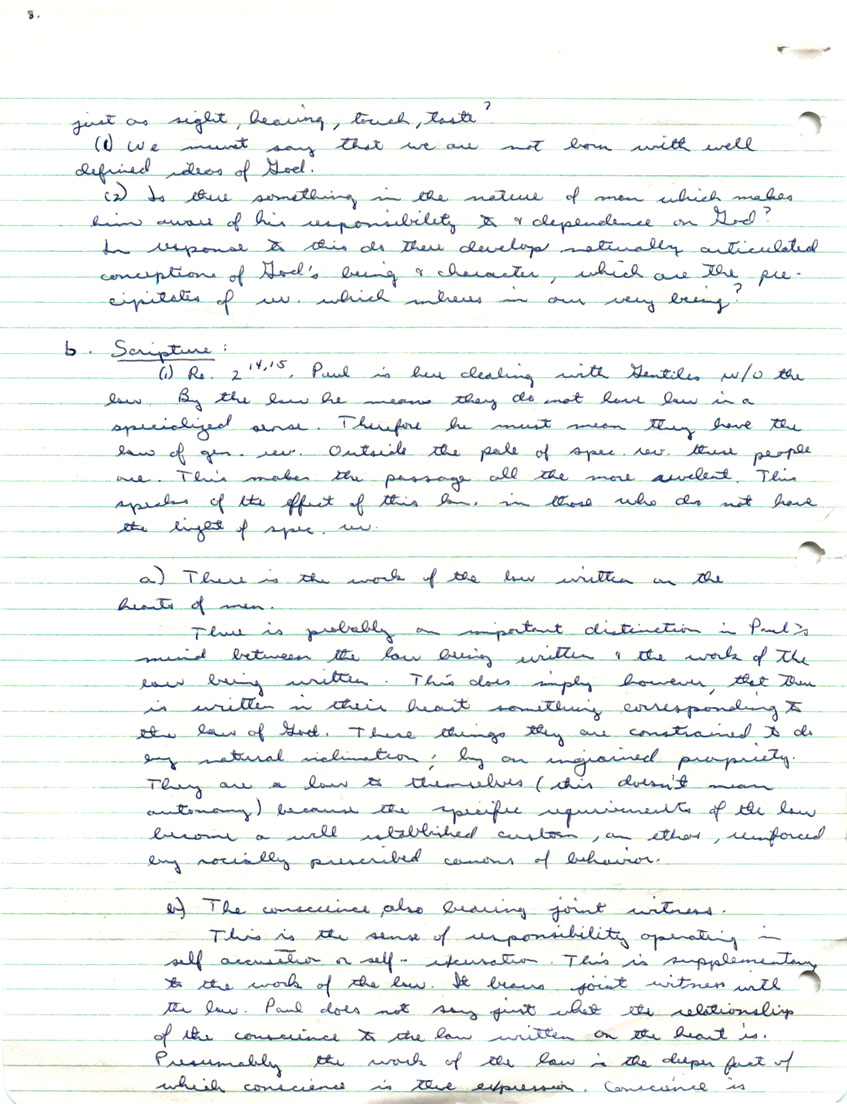 8.
just as sight, hearing, touch, taste?
(1) We must say that we are not born with well
defined ideas of God.
(2) Is there something in the nature of men which makes
him aware of his responsibility to & dependence on God?
In response to this do there develop naturally articulated
conceptions of God's being & character, which are the pre-
cipitates of rev. which inheres in our very being?
b. Scripture:
(1) Ro. 2 14,15. Paul is here dealing with Gentiles w/o the
law. By the law he means they do not have law in a
specialized sense. Therefore he must mean they have the
law of gen. rev. Outside the pale of spec. rev. these people
are. This makes the passage all the more relevant. This
speaks of the effect of this law in those who do not have
the light of spec. rev.
a) There is the work of the law written on the
hearts of men.
There is probably an important distinction in Paul's
mind between the law being written & the work of the
law being written. This does imply however, that there
is written in their heart something corresponding to
the law of God. These things they are constrained to do
by natural inclination; by an ingrained propriety.
They are a law to themselves (this doesn't mean
autonomy) because the specific requirements of the law
become a well established custom, an ethos, reinforced
by socially prescribed canons of behavior.
b) The conscience also bearing joint witness.
This is the sense of responsibility operating in
self accusation or self-excusation. This is supplementary
to the work of the law. It bears joint witness with
the law. Paul does not say just what the relationship
of the conscience to the law written on the heart is.
Presumably the work of the law is the deeper fact of
which conscience is the expression. Conscience is